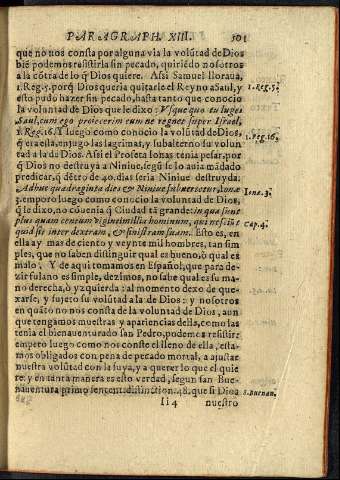 PARAGRAPH. XIII. 501
que no nos consta por alguna via la volũtad de Dios
biẽ podemos resistirla sin pecado, quiriẽdo nosotros
a la cõtra de lo q̃ Dios quiere. Assi Samuel lloraua,
1. Reg. 5. porq̃ Dios queria quitarle el Reyno a Saul, y
esto pudo hazer sin pecado, hasta tanto que conocio
la voluntad de Dios que le dixo: Vsque quo tu luges
Saul, cum ego proiecerim eum ne regnet super Israel,
1. Reg. 16. Y luego como conocio la volũtad de Dios,
q̃ era esta, enjugo las lagrimas, y subalterno su volun
tad a la di Dios. Assi el Proseta Ionas tenia pesar, por
q̃ Dios no destruya a Niniue, segũ se lo auia mãdado
predicar, q̃ dẽtro de 40. dias seria Niniue destruyda:
Adhuc quadraginta dies & Niniue subuersetur, Ionæ
3. temporo luego como conocio la voluntad de Dios,
q̃ le dixo, no cõuenia q̃ Ciudad tã grande: in qua sunt
plus quam centum viginti millia hominum, qui nesciũt
quid sit inter dexteram, & sinistram suam. Esto es, en
ella ay mas de ciento y veynte mil hombres, tan sim
ples, que no saben distinguir qual es bueno, ò qual es
malo. Y de aqui tomamos en Español, que para de-
zir fulano es simple, dezimos, no sabe qual es su ma-
no derecha, ò yzquierda: al momento dexo de que-
xarse, y sujeto su volũtad a la de Dios: y nosotros
en quãto no nos consta de la voluntad de Dios, aun
que tengamos muestras y apariencias della, como las
tenia el bienauenturado san Pedro, podemos resistirz
empero luego como nos conste el lleno de ella, esta-
mos obligados con pena de pecado mortal, a ajustar
nuestra volũtad con la suya, y a querer lo que el quie
re: y en tanta manera es esto verdad, segun san Bue-
nauentura primo sentent. distinction. 48. que si Dios
Ii 4 nuestro
1. Reg. 5.
1. Reg. 16.
Iona. 3.
Cap. 4.
S. Buenau.